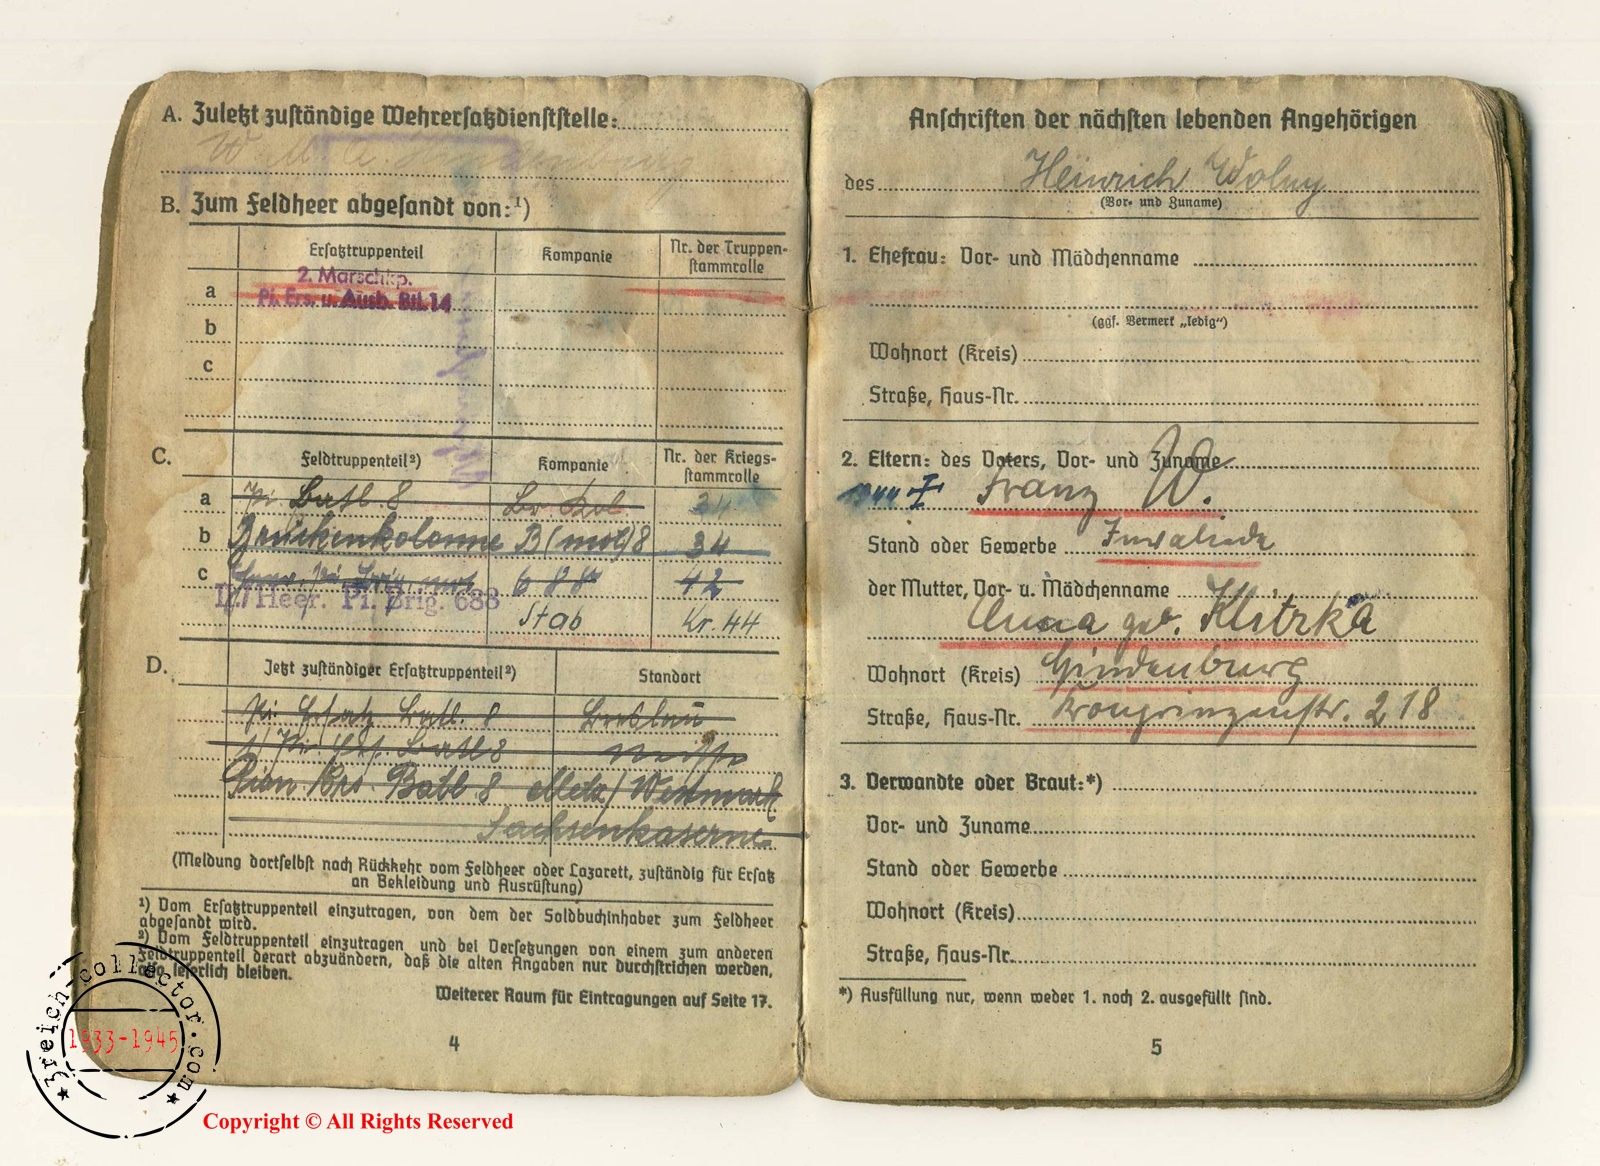 A. Zuletzt zuständige Wehrersatzdienststelle:
W. M. A. Hindenburg
B. Zum Feldheer abgesandt von:¹)
Ersatztruppenteil Kompanie Nr. der Truppen-
stammrolle
2. Marschkp.
a Pi. Ers. u. Ausb. Btl. 14
b
c
C. Feldtruppenteil²) Kompanie Nr. der Kriegs-
stammrolle
a Pi. Batl. 8 Br Kol 34
b Brückenkolonne B (mot) 8 34
c 688 42
II./Heer. Pi. Brig. 688
Stab Kr. 44
D. Jetzt zuständiger Ersatztruppenteil²) Standort
Pi. Ersatz Batl. 8 Breslau
Pi. Ers. Batl 8
Pion. Ers. Batl 8 Metz / Westmark
Sachsenkaserne
(Meldung dortselbst nach Rückkehr vom Feldheer oder Lazarett, zuständig für Ersatz
an Bekleidung und Ausrüstung)
¹) Vom Ersatztruppenteil einzutragen, von dem der Soldbuchinhaber zum Feldheer
abgesandt wird.
²) Vom Feldtruppenteil einzutragen und bei Versetzungen von einem zum anderen
Feldtruppenteil derart abzuändern, daß die alten Angaben nur durchstrichen werden,
also leserlich bleiben.
Weiterer Raum für Eintragungen auf Seite 17.
4
Anschriften der nächsten lebenden Angehörigen
des Heinrich Wolny
(Vor- und Zuname)
1. Ehefrau: Vor- und Mädchenname
(ggf. Vermerk „ledig“)
Wohnort (Kreis)
Straße, Haus-Nr.
2. Eltern: des Vaters, Vor- und Zuname
1944 Franz W.
Stand oder Gewerbe Invalide
der Mutter, Vor- u. Mädchenname
Anna geb. Klitzka
Wohnort (Kreis) Hindenburg
Straße, Haus-Nr. Kronprinzenstr. 218
3. Verwandte oder Braut:*)
Vor- und Zuname
Stand oder Gewerbe
Wohnort (Kreis)
Straße, Haus-Nr.
*) Ausfüllung nur, wenn weder 1. noch 2. ausgefüllt sind.
5
3reich-collector.com
1933-1945
Copyright © All Rights Reserved